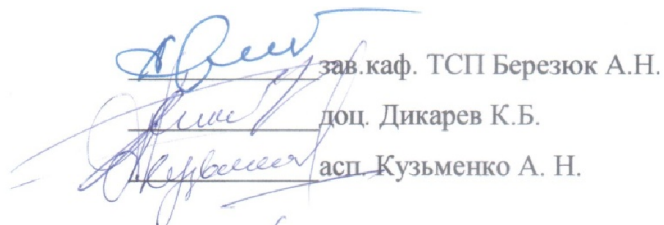 зав.каф. ТСП Березюк А.Н.
доц. Дикарев К.Б.
асп. Кузьменко А. Н.